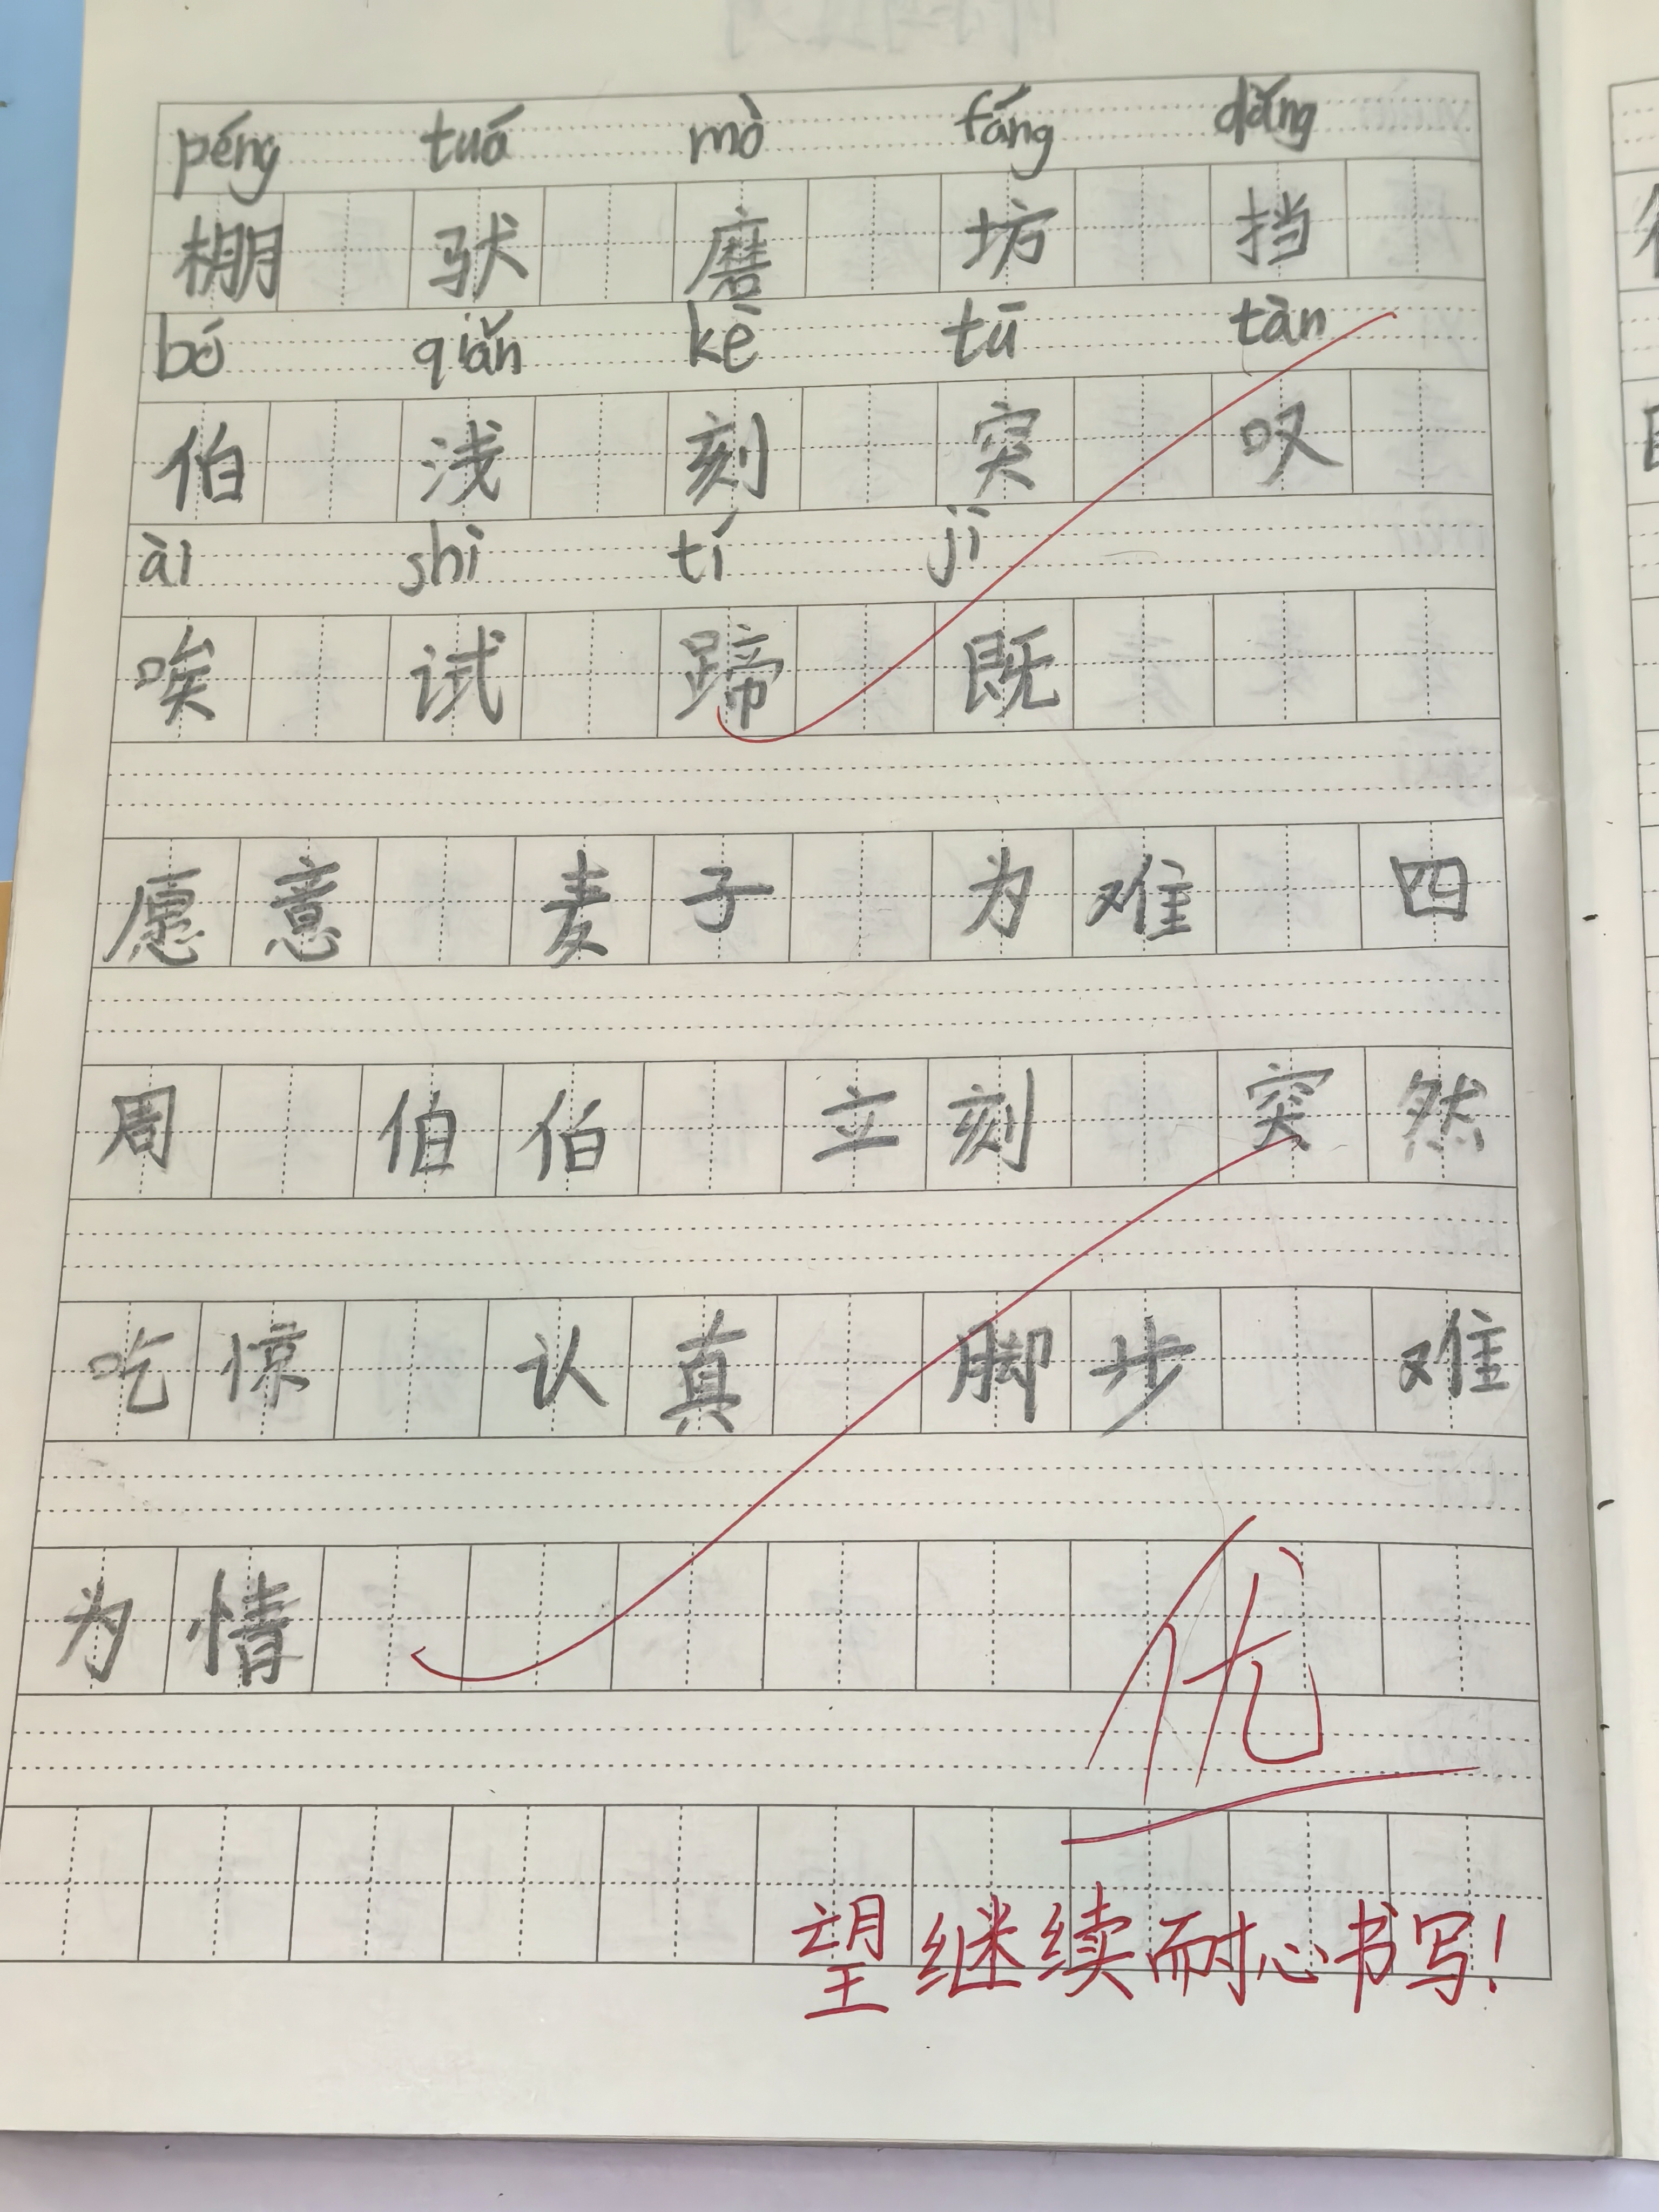 péng tuó mò fáng dǎng
棚 驮 磨 坊 挡
bó qiǎn kè tū tàn
伯 浅 刻 突 叹
ài shì tí jì
唉 试 蹄 既
愿意 麦子 为难 四
周 伯伯 立刻 突然
吃惊 认真 脚步 难
为情
优
望继续耐心书写!